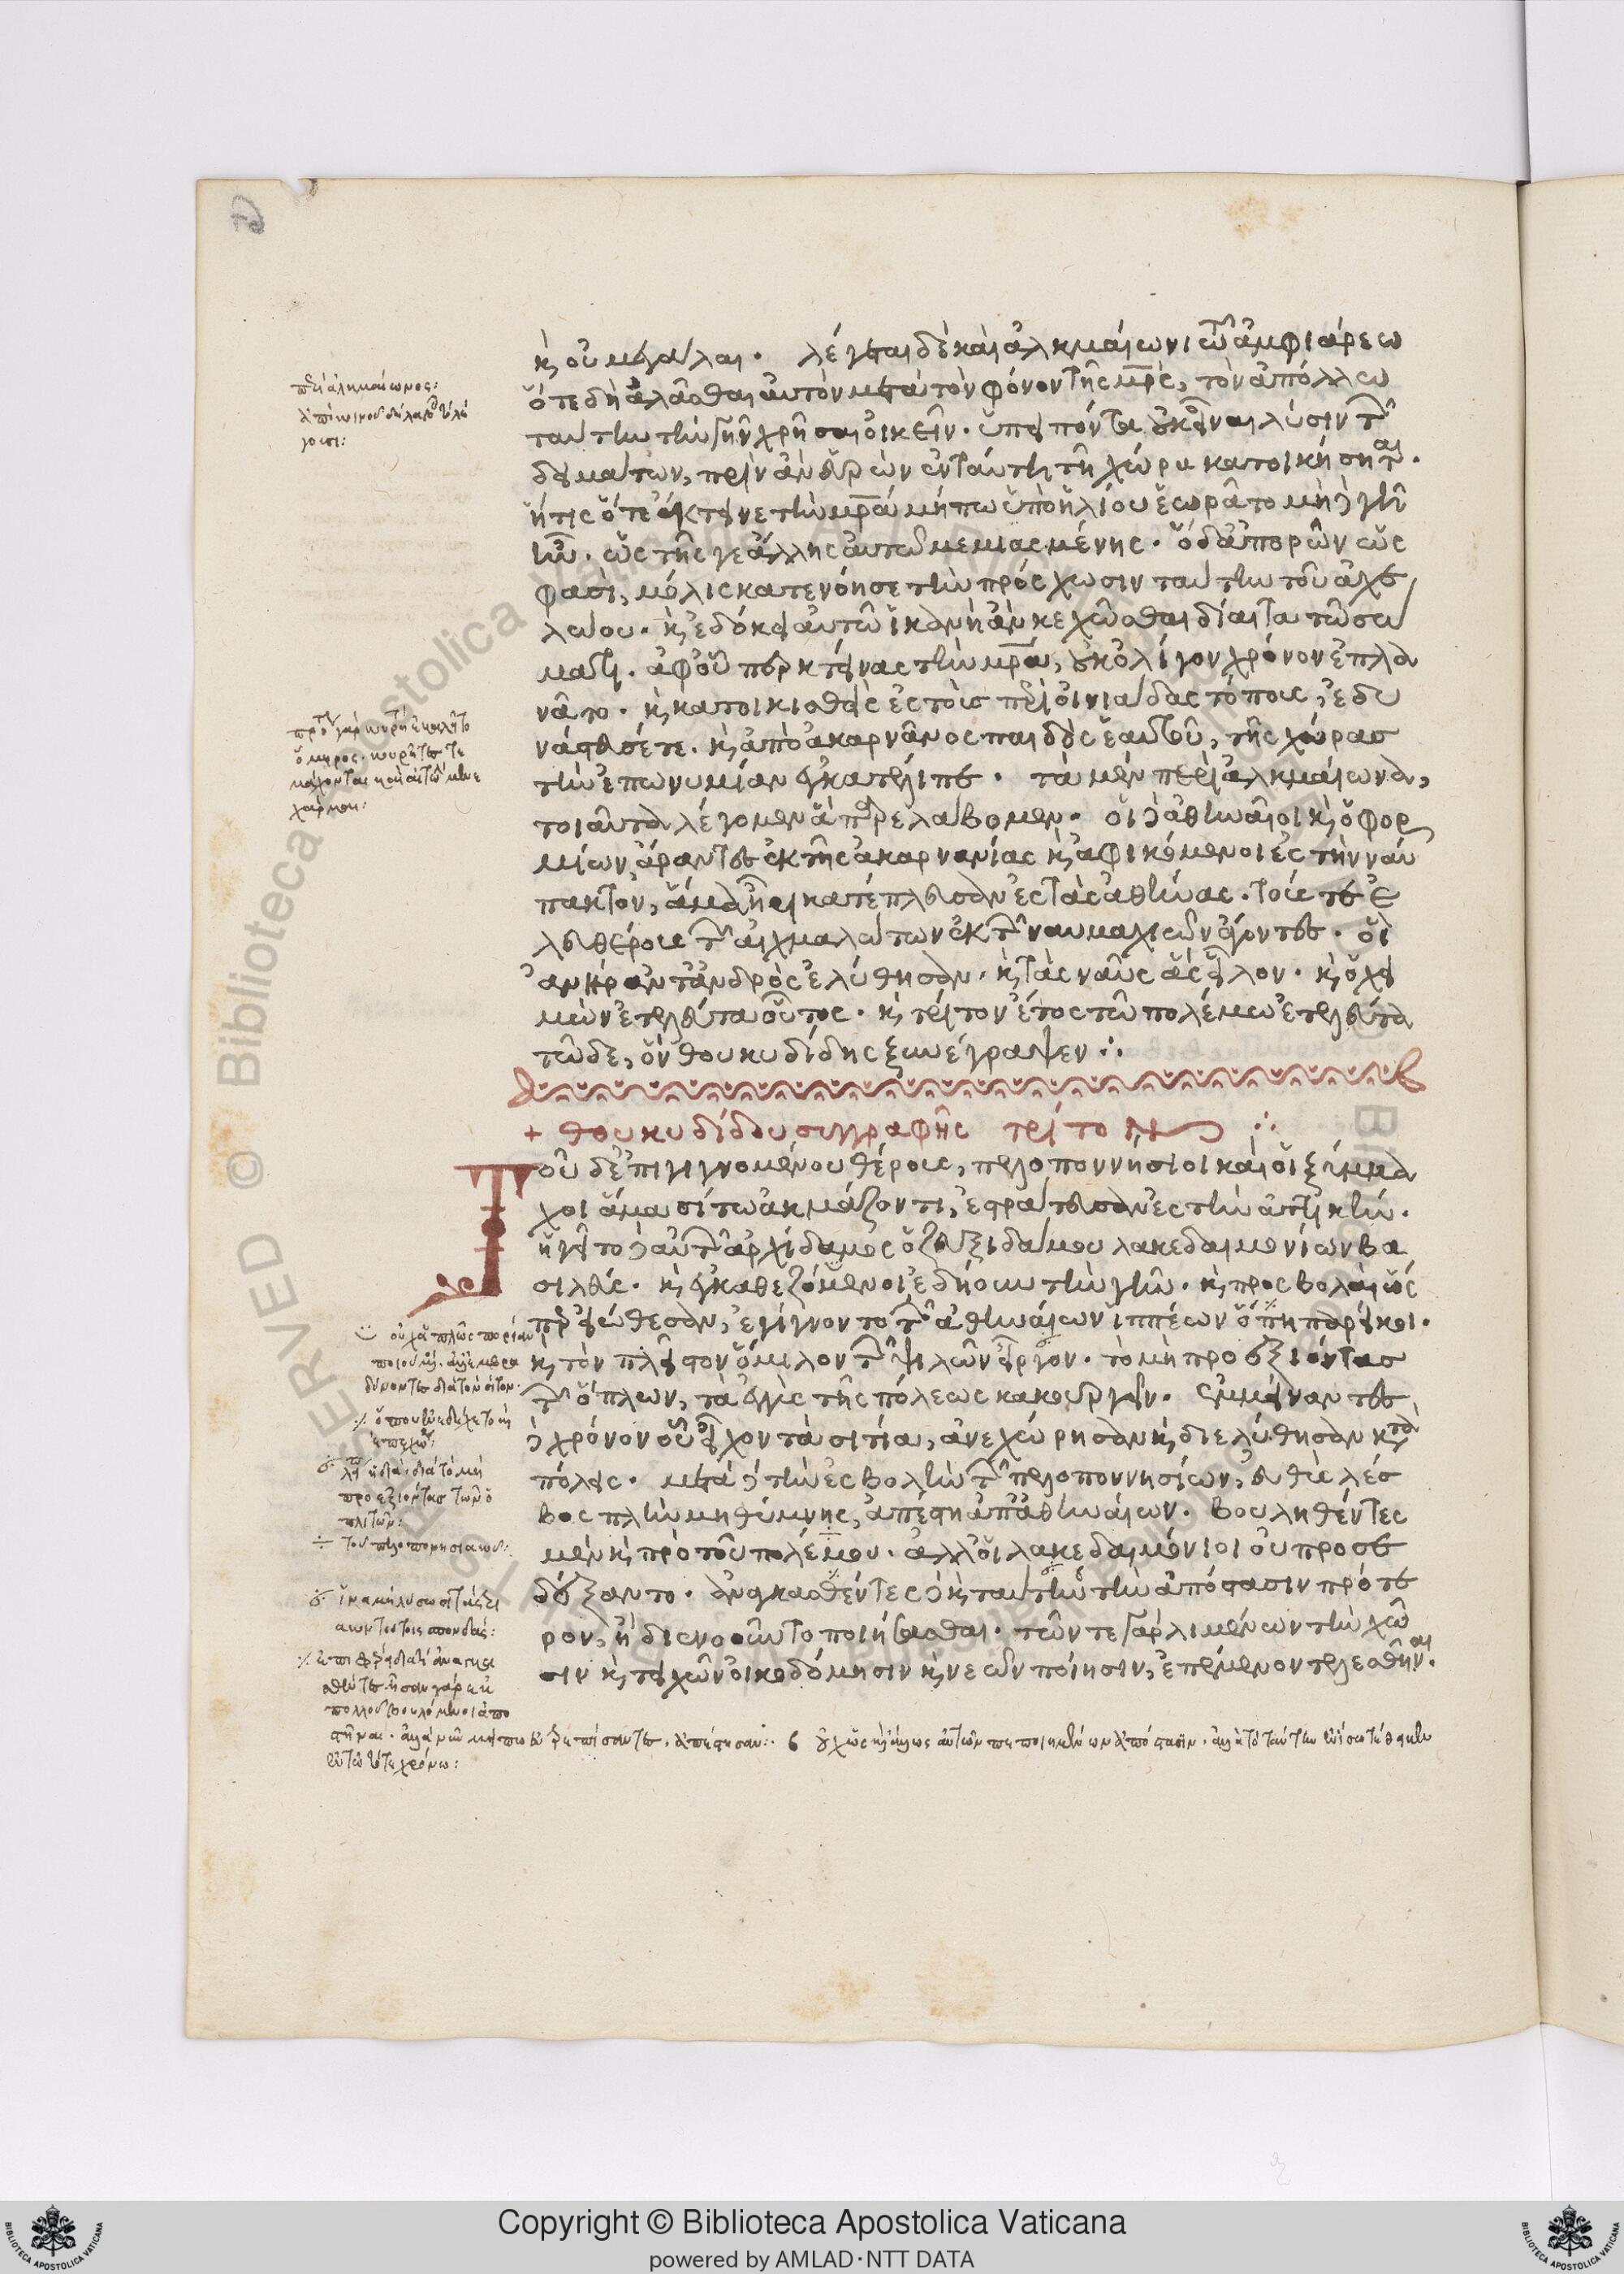 κ οὐ μεγάλαι · λέγεται δὲ καὶ ἀλκμαίωνι τῶ ἀμφιάρεω
ὅτε δὴ ἀλᾶσθαι αὐτὸν μετὰ τὸν φόνον τῆς μρς, τὸν ἀπόλλω
ταύτην τὴν γῆν χρῆσαι οἰκεῖν · ὑπειπόντα οὐκ εἶναι λύσιν τῶν
δειμάτων, πρὶν ἂν εὑρὼν ἐν ταύτη τῆ χώρα κατοικήσηται ·
ἥτις ὅτε ἔκτεινε τὴν μρα μήπω ὑπὸ ἡλίου ἑωρᾶτο μὴ δὲ γῆ
ἦν · ὡς τῆς γε ἄλλης αὐτῶ μεμιασμένης · ὁ δ' ἀπορῶν ὡς
φασὶ, μόλις κατενόησε τὴν πρόσχωσιν ταύτην τοῦ ἀχε
λώου · κ ἐδόκει αὐτῶ ἱκανὴ ἂν κεχῶσθαι δίαιτα τῶ σώ
ματι · ἀφ' οὗ περ κτείνας τὴν μρα, οὐκ ὀλίγον χρόνον ἐπλα
νᾶτο · κ κατοικισθεὶς ἐς τοὺς περὶ οἰνιάδας τόπους, ἐδυ
νάστευσέ τε · κ ἀπὸ ἀκαρνᾶνος παιδὸς ἑαυτοῦ, τῆς χώρας
τὴν ἐπωνυμίαν ἐγκατέλιπε · τὰ μὲν περὶ ἀλκμαίωνα,
τοιαῦτα λεγόμενα παρελάβομεν · οἱ δὲ ἀθηναῖοι κ ὁ φορ
μίων ἄραντες ἐκ τῆς ἀκαρνανίας κ ἀφικόμενοι ἐς τὴν ναύ
πακτον, ἅμα ἦρι κατέπλευσαν ἐς τὰς ἀθήνας · τούς τε ἐ
λευθέρους τῶν αἰχμαλώτων ἐκ τῶν ναυμαχιῶν ἄγοντες · οἳ
ἀνὴρ ἀντ' ἀνδρὸς ἐλύθησαν · κ τὰς ναῦς ἃς εἷλον · κ ὁ χει
μὼν ἐτελεύτα οὗτος · κ τρίτον ἔτος τῶ πολέμω ἐτελεύτα
τῶδε, ὃν θουκυδίδης ξυνέγραψεν ∴
+ θουκυδίδου συγγραφῆς τρίτον ∴
Τοῦ δ' ἐπιγιγνομένου θέρους, πελοποννήσιοι καὶ οἱ ξύμμα
χοι ἅμα σίτω ἀκμάζοντι, ἐστράτευσαν ἐς τὴν ἀττικήν ·
ἡγεῖτο δὲ αὐτῶν ἀρχίδαμος ὁ ζευξιδάμου λακεδαιμονίων βα
σιλεύς · κ ἐγκαθεζόμενοι ἐδήουν τὴν γῆν · κ προσβολαὶ ὥσ
περ εἰώθεσαν, ἐγίγνοντο τῶν ἀθηναίων ἱππέων ὅπη παρείκοι ·
κ τὸν πλεῖστον ὅμιλον τῶν ψιλῶν εἶργον · τὸ μὴ προεξιόντας
τῶν ὅπλων, τὰ ἐγγὺς τῆς πόλεως κακουργεῖν · ἐμμείναντες
δὲ χρόνον οὗ εἶχον τὰ σιτία, ἀνεχώρησαν κ διελύθησαν κατὰ
πόλεις · μετὰ δὲ τὴν ἐσβολὴν τῶν πελοποννησίων, εὐθὺς λέσ
βος πλὴν μηθύμνης, ἀπέστη ἀπ' ἀθηναίων · βουληθέντες
μὲν κ πρὸ τοῦ πολέμου · ἀλλ' οἱ λακεδαιμόνιοι οὐ προσε
δέξαντο · ἀναγκασθέντες δὲ κ ταύτην τὴν ἀπόστασιν πρότε
ρον, ἢ διενοοῦντο ποιήσασθαι · τῶν τε γὰρ λιμένων τὴν χῶ
σιν κ τειχῶν οἰκοδόμησιν κ νεῶν ποίησιν, ἐπέμενον τελεσθῆναι ·
περὶ ἀλκμαίωνος:
ὅμηρος · κουρῆτες τε
μάχοντο καὶ αἰτωλοὶ μενε
χάρμαι:
τοὺς πελοποννησίους:
Copyright © Biblioteca Apostolica Vaticana
powered by AMLAD·NTT DATA